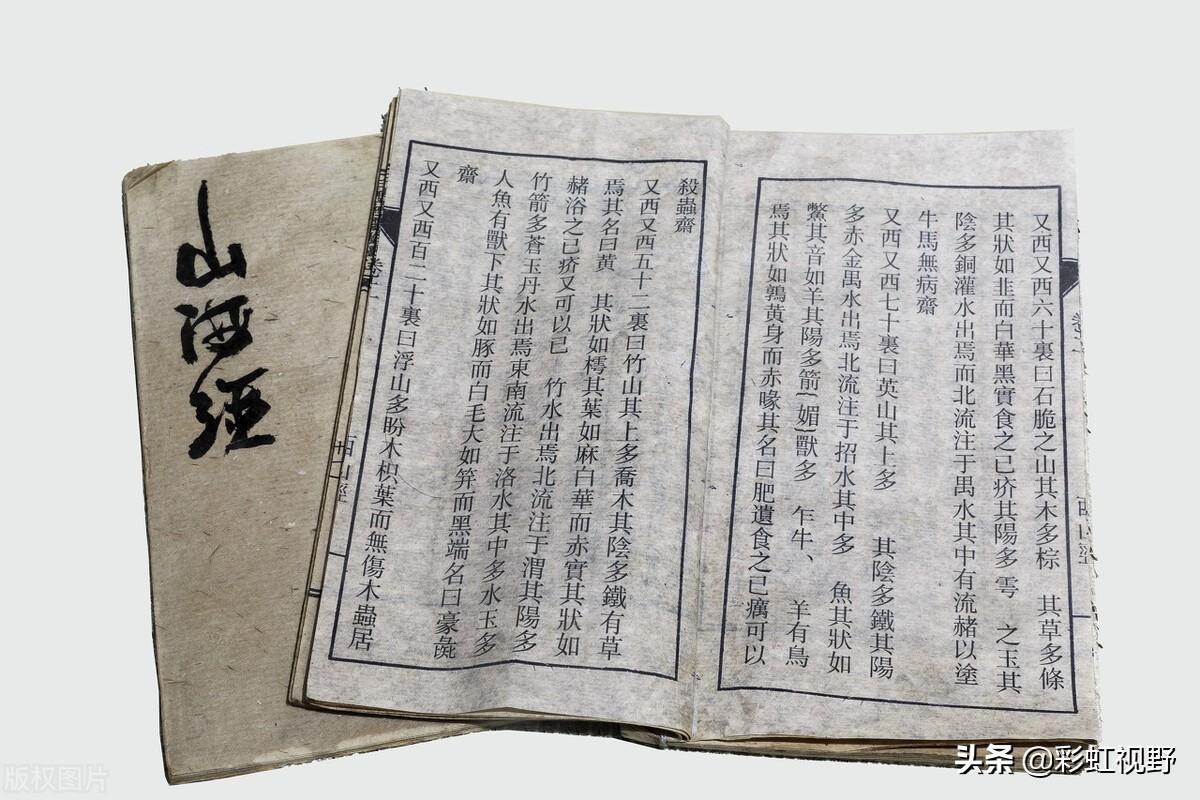 山海經
又西又西六十裏曰石脆之山其木多棕　其草多條
其狀如韭而白華黑實食之已疥其陽多雩　之玉其
陰多銅灌水出焉而北流注于禺水其中有流赭以塗
牛馬無病齋
又西又西七十裏曰英山其上多　　其陰多鐵其陽
多赤金禺水出焉北流注于招水其中多　魚其狀如
鱉其音如羊其陽多箭｛媚｝獸多　乍牛、　羊有鳥
焉其狀如鶉黃身而赤喙其名曰肥遺食之已癘可以
殺蟲齋
又西又西五十二裏曰竹山其上多喬木其陰多鐵有草
焉其名曰黃　其狀如樗其葉如麻白華而赤實其狀如
赭浴之已疥又可以已　竹水出焉北流注于渭其陽多
竹箭多蒼玉丹水出焉東南流注于洛水其中多水玉多
人魚有獸下其狀如豚而白毛大如笄而黑端名曰豪彘
齋
又西又西百二十裏曰浮山多盼木枳葉而無傷木蟲居
西山經
头条 @彩虹视野
版权图片